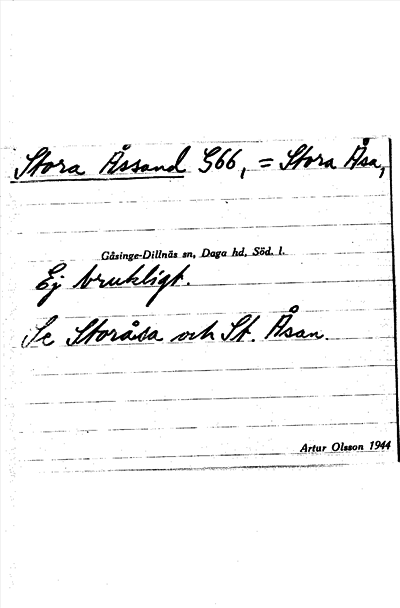 Stora Åssand G66, = Stora Åsa,
Gåsinge-Dillnäs sn, Daga hd, Söd. l.
Ej brukligt.
Se Storåsa och St. Åsan.
Artur Olsson 1944